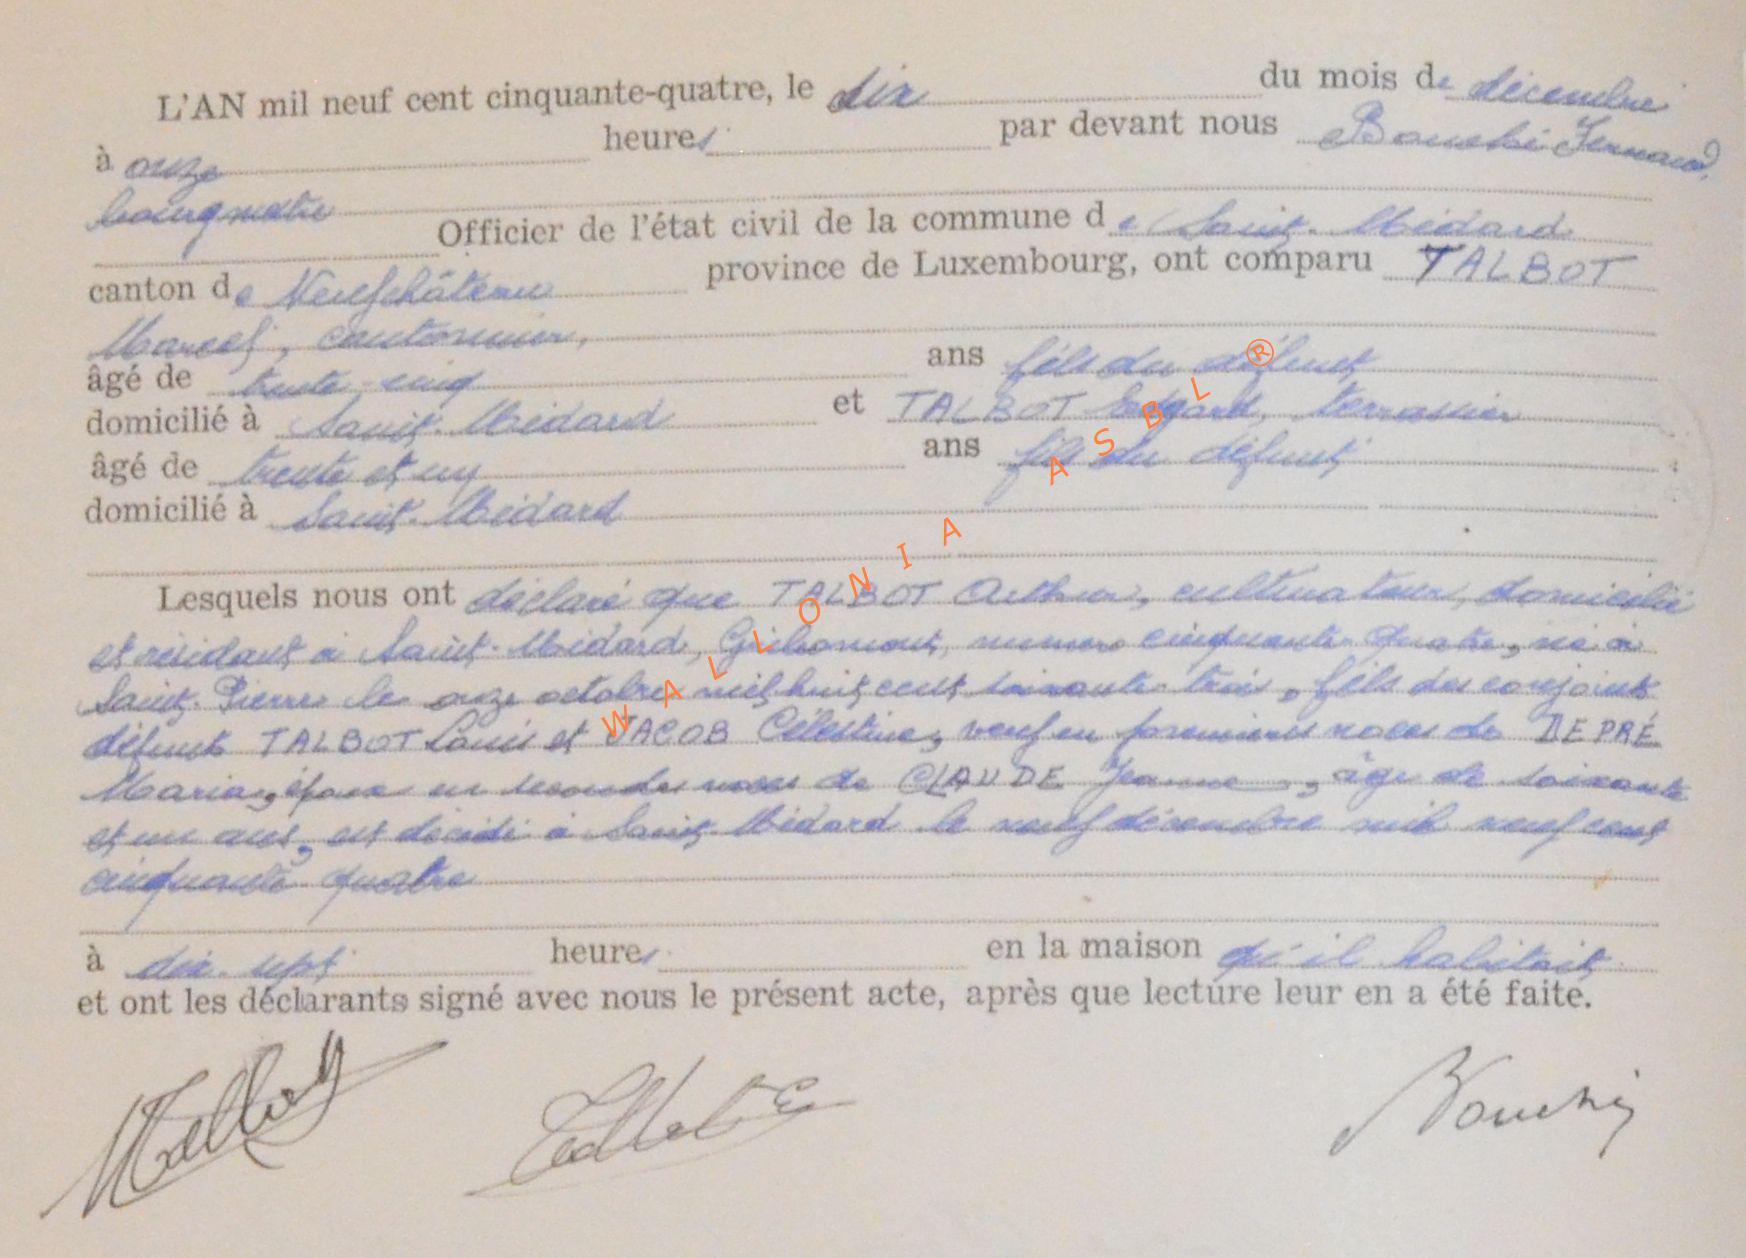 L'AN mil neuf cent cinquante-quatre, le dix du mois de décembre
à onze heures par devant nous Bouché Fernand,
bourgmestre
Officier de l'état civil de la commune de Saint-Médard
canton de Neufchâteau province de Luxembourg, ont comparu TALBOT
Marcel, cantonnier,
âgé de trente-cinq ans fils du défunt
domicilié à Saint-Médard et TALBOT Edgard, terrassier
âgé de trente et un ans fils du défunt
domicilié à Saint-Médard
Lesquels nous ont déclaré que TALBOT Arthur, cultivateur, domicilié
et résidant à Saint-Médard, Gribomont, numéro cinquante-quatre, né à
Saint-Pierre le onze octobre mil huit cent soixante-trois, fils des conjoints
défunts TALBOT Louis et JACOB Célestine, veuf en premières noces de DEPRÉ
Maria, époux en secondes noces de CLAUDE Jeanne, âgé de soixante
et un ans, est décédé à Saint-Médard le neuf décembre mil neuf cent
cinquante quatre
à dix-sept heures en la maison qu'il habitait
et ont les déclarants signé avec nous le présent acte, après que lecture leur en a été faite.
MTalbot Talbot E Bouché
WALLONIA ASBL ®